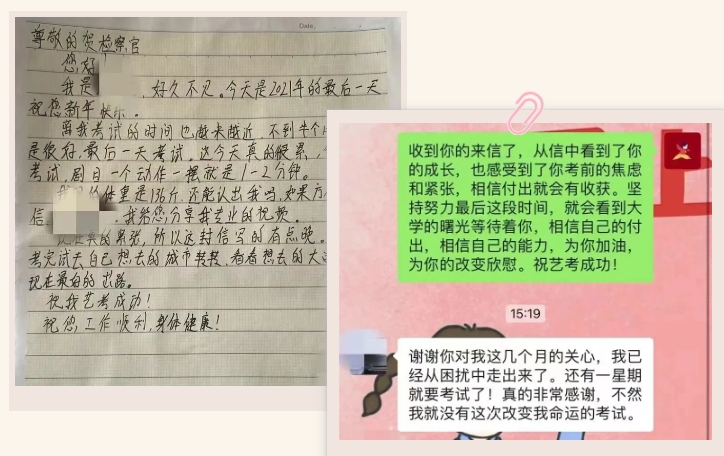 Date.
尊敬的贺检察官
您好!
我是 ,好久不见。今天是2021年的最后一天
祝您新年快乐。
离我考试的时间也越来越近,不到半个
是很好,最后一天考试,
考试,周日一个动作一摆就是1-2分钟。
体重是136斤,还能认出我吗,如果方
信 ,我给您分享我专业的视频。
的紧张,所以这封信写的有点晚。
考完试去自己想去的城市转转,看看想去的大
现在最白的芯路。
祝我艺考成功!
祝您,工作顺利,身体健康!
收到你的来信了,从信中看到了你
的成长,也感受到了你考前的焦虑
和紧张,相信付出就会有收获。坚
持努力最后这段时间,就会看到大
学的曙光等待着你,相信自己的付
出,相信自己的能力,为你加油,
为你的改变欣慰。祝艺考成功!
15:19
谢谢你对我这几个月的关心,我已
经从困扰中走出来了。还有一星期
就要考试了!真的非常感谢,不然
我就没有这次改变我命运的考试。